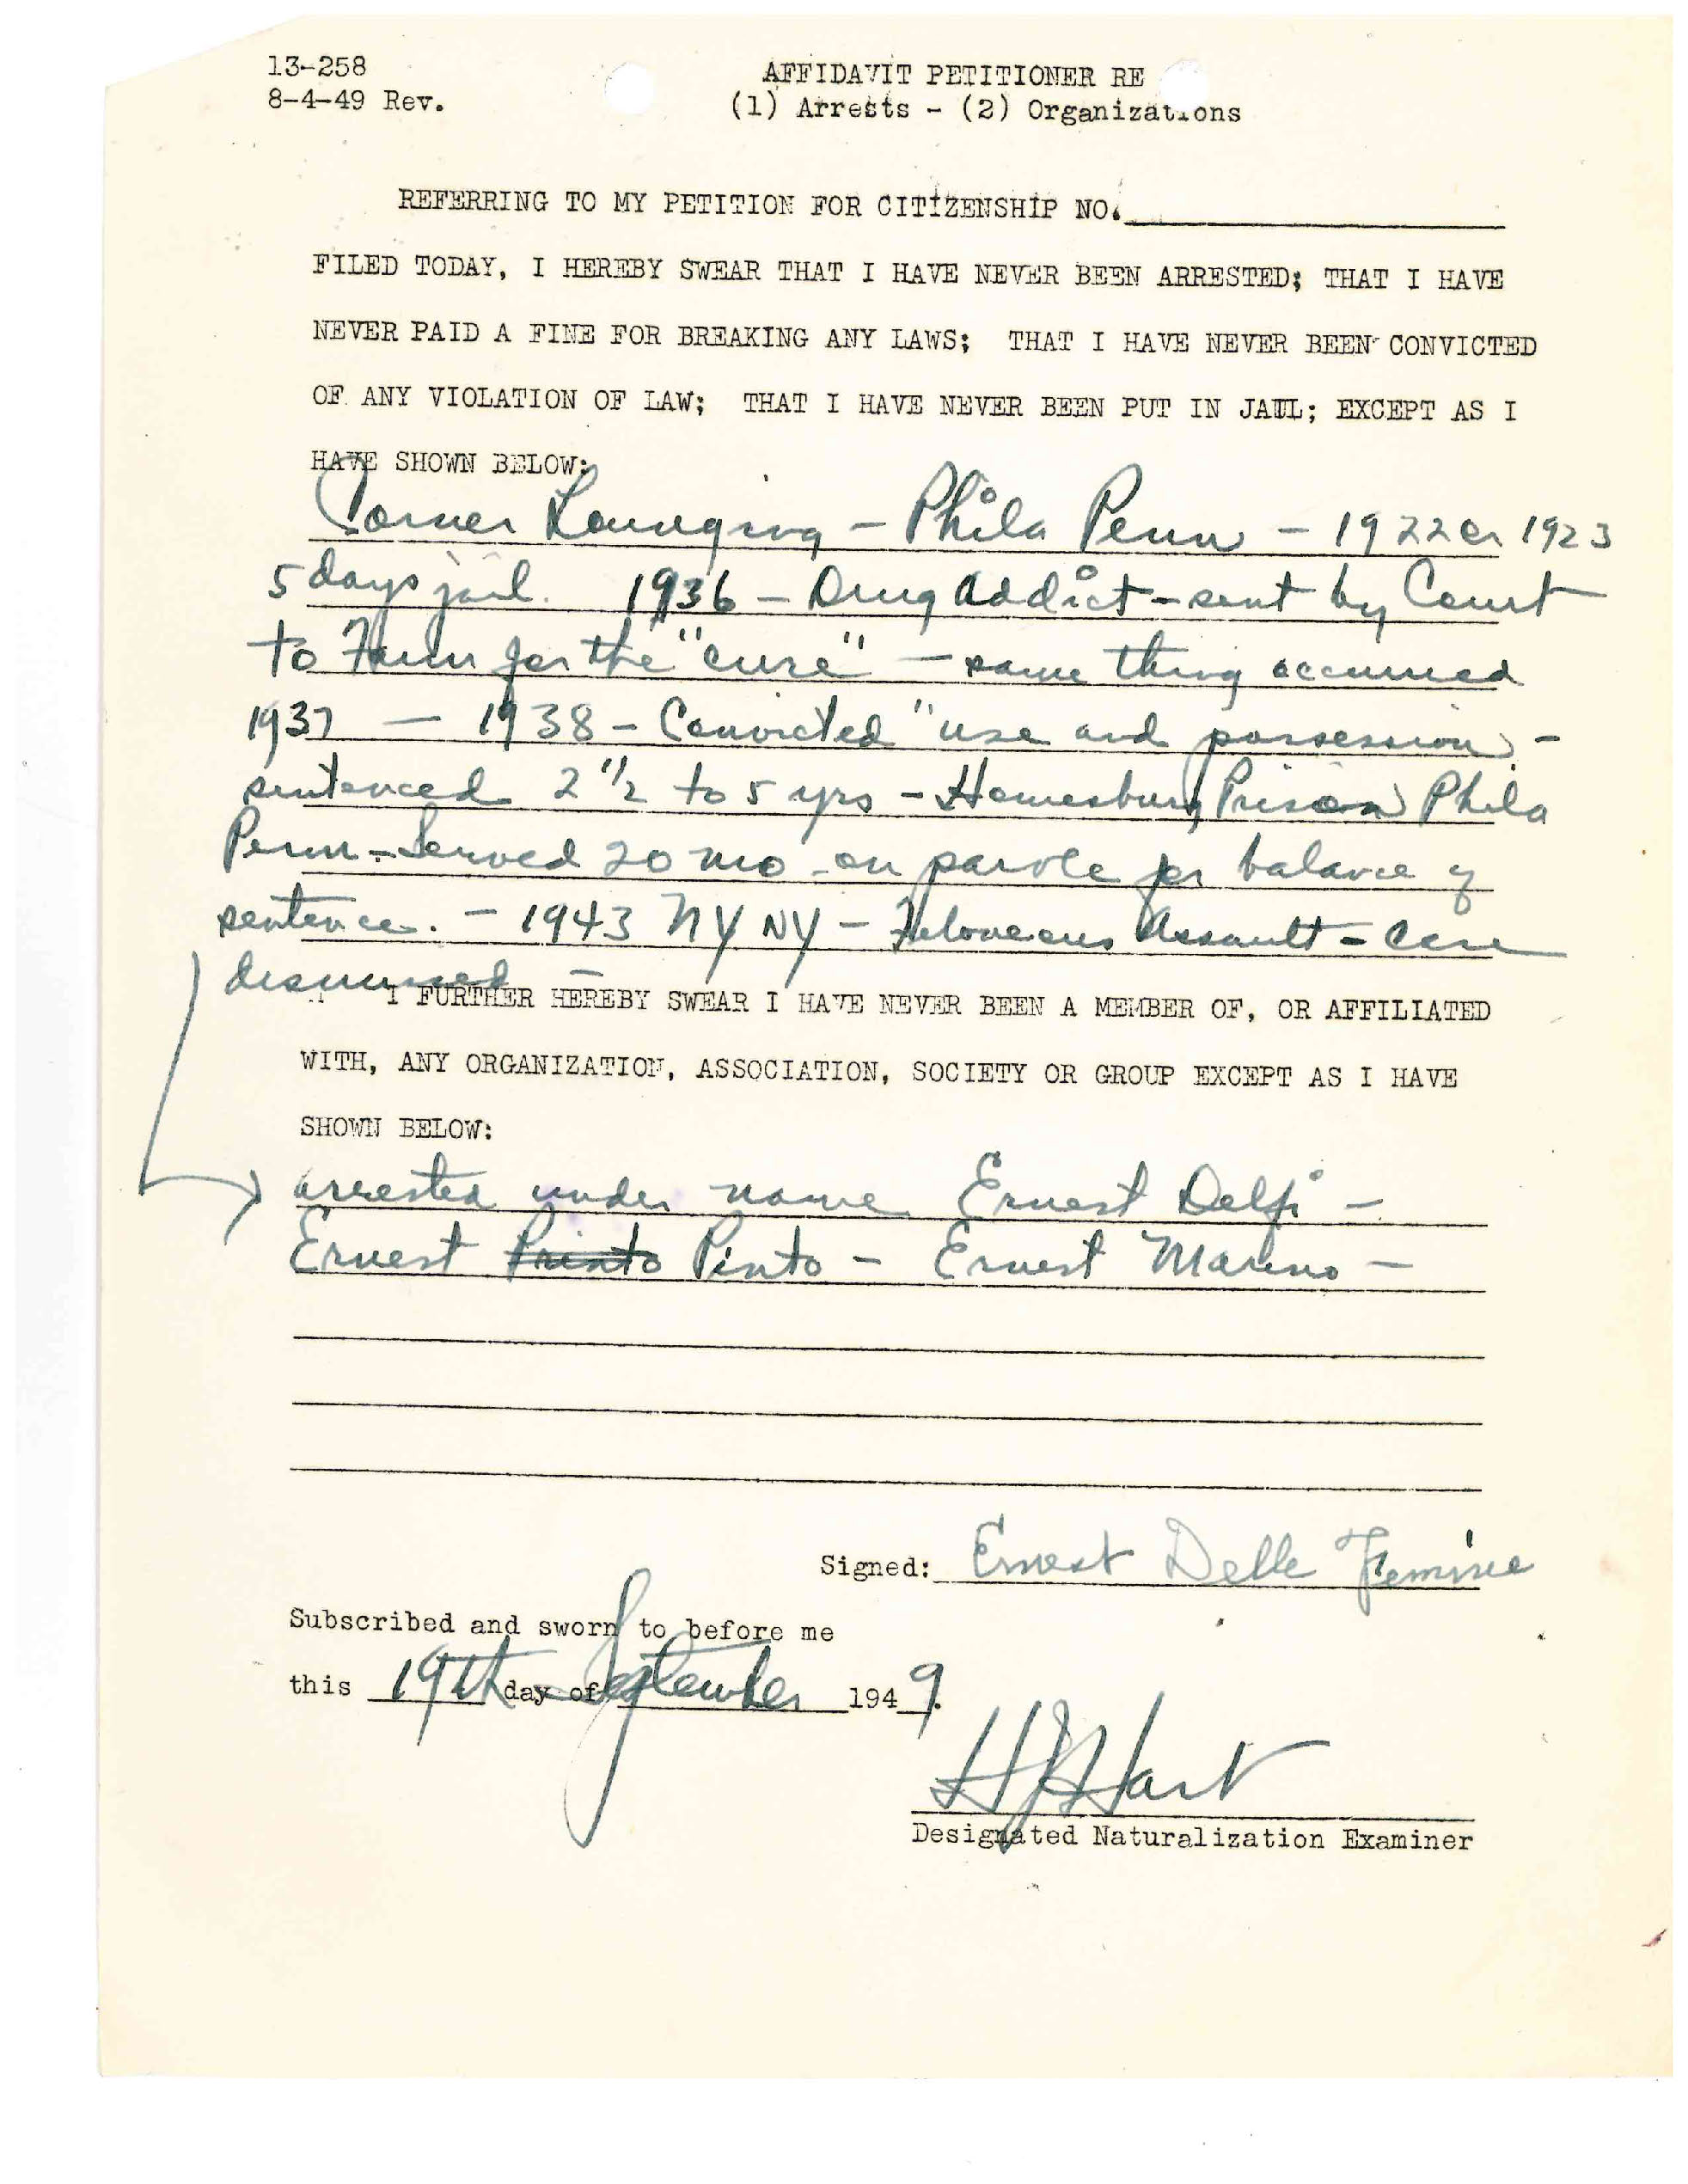 13-258
8-4-49 Rev.
AFFIDAVIT PETITIONER RE
(1) Arrests - (2) Organizations
REFERRING TO MY PETITION FOR CITIZENSHIP NO.
FILED TODAY, I HEREBY SWEAR THAT I HAVE NEVER BEEN ARRESTED; THAT I HAVE
NEVER PAID A FINE FOR BREAKING ANY LAWS; THAT I HAVE NEVER BEEN CONVICTED
OF ANY VIOLATION OF LAW; THAT I HAVE NEVER BEEN PUT IN JAIL; EXCEPT AS I
HAVE SHOWN BELOW:
Corner Lounging - Phila Penn - 1922 or 1923
5 days jail. 1936 - Drug Addict - sent by Court
to Farm for the "cure" - same thing occurred
1937 — 1938 - Convicted "use and possession -
sentenced 2 1/2 to 5 yrs - Homesburg Prison Phila
Penn - Served 20 mo - on parole for balance of
sentence. - 1943 NY NY - Feloneous Assault - Case
dismissed -
I FURTHER HEREBY SWEAR I HAVE NEVER BEEN A MEMBER OF, OR AFFILIATED
WITH, ANY ORGANIZATION, ASSOCIATION, SOCIETY OR GROUP EXCEPT AS I HAVE
SHOWN BELOW:
arrested under name Ernest Delfi -
Ernest Printo Pinto - Ernest Marino -
Signed: Ernest Delle Femine
Subscribed and sworn to before me
this 19th day of September 1949.
H J Hart
Designated Naturalization Examiner